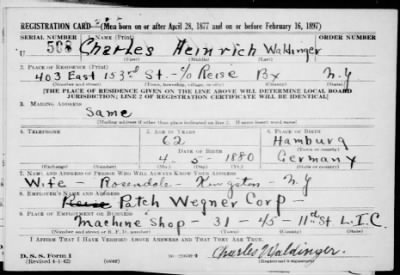 REGISTRATION CARD—(Men born on or after April 28, 1877 and on or before February 16, 1897)
SERIAL NUMBER 1. NAME (Print)
U 508 Charles Heinrich Waldinger
(First) (Middle) (Last)
2. PLACE OF RESIDENCE (Print)
403 East 153rd St. - c/o Reise Bx N.Y
(Number and street) (Town, township, village, or city) (County) (State)
[THE PLACE OF RESIDENCE GIVEN ON THE LINE ABOVE WILL DETERMINE LOCAL BOARD
JURISDICTION; LINE 2 OF REGISTRATION CERTIFICATE WILL BE IDENTICAL]
3. MAILING ADDRESS
Same
[Mailing address if other than place indicated on line 2. If same insert word same]
4. TELEPHONE 5. AGE IN YEARS 6. PLACE OF BIRTH
62 Hamburg
DATE OF BIRTH (Town or county)
4 - 5 - 1880 Germany
(Exchange) (Number) (Mo.) (Day) (Yr.) (State or country)
7. NAME AND ADDRESS OF PERSON WHO WILL ALWAYS KNOW YOUR ADDRESS
Wife - Rosendale - Kingston - N.Y
8. EMPLOYER'S NAME AND ADDRESS
Patch Wegner Corp -
9. PLACE OF EMPLOYMENT OR BUSINESS
Machine Shop - 31 - 45 - 11th St L.I.C.
(Number and street or R. F. D. number) (Town) (County) (State)
I AFFIRM THAT I HAVE VERIFIED ABOVE ANSWERS AND THAT THEY ARE TRUE.
D. S. S. Form 1
(Revised 4-1-42) (over) Charles Waldinger.